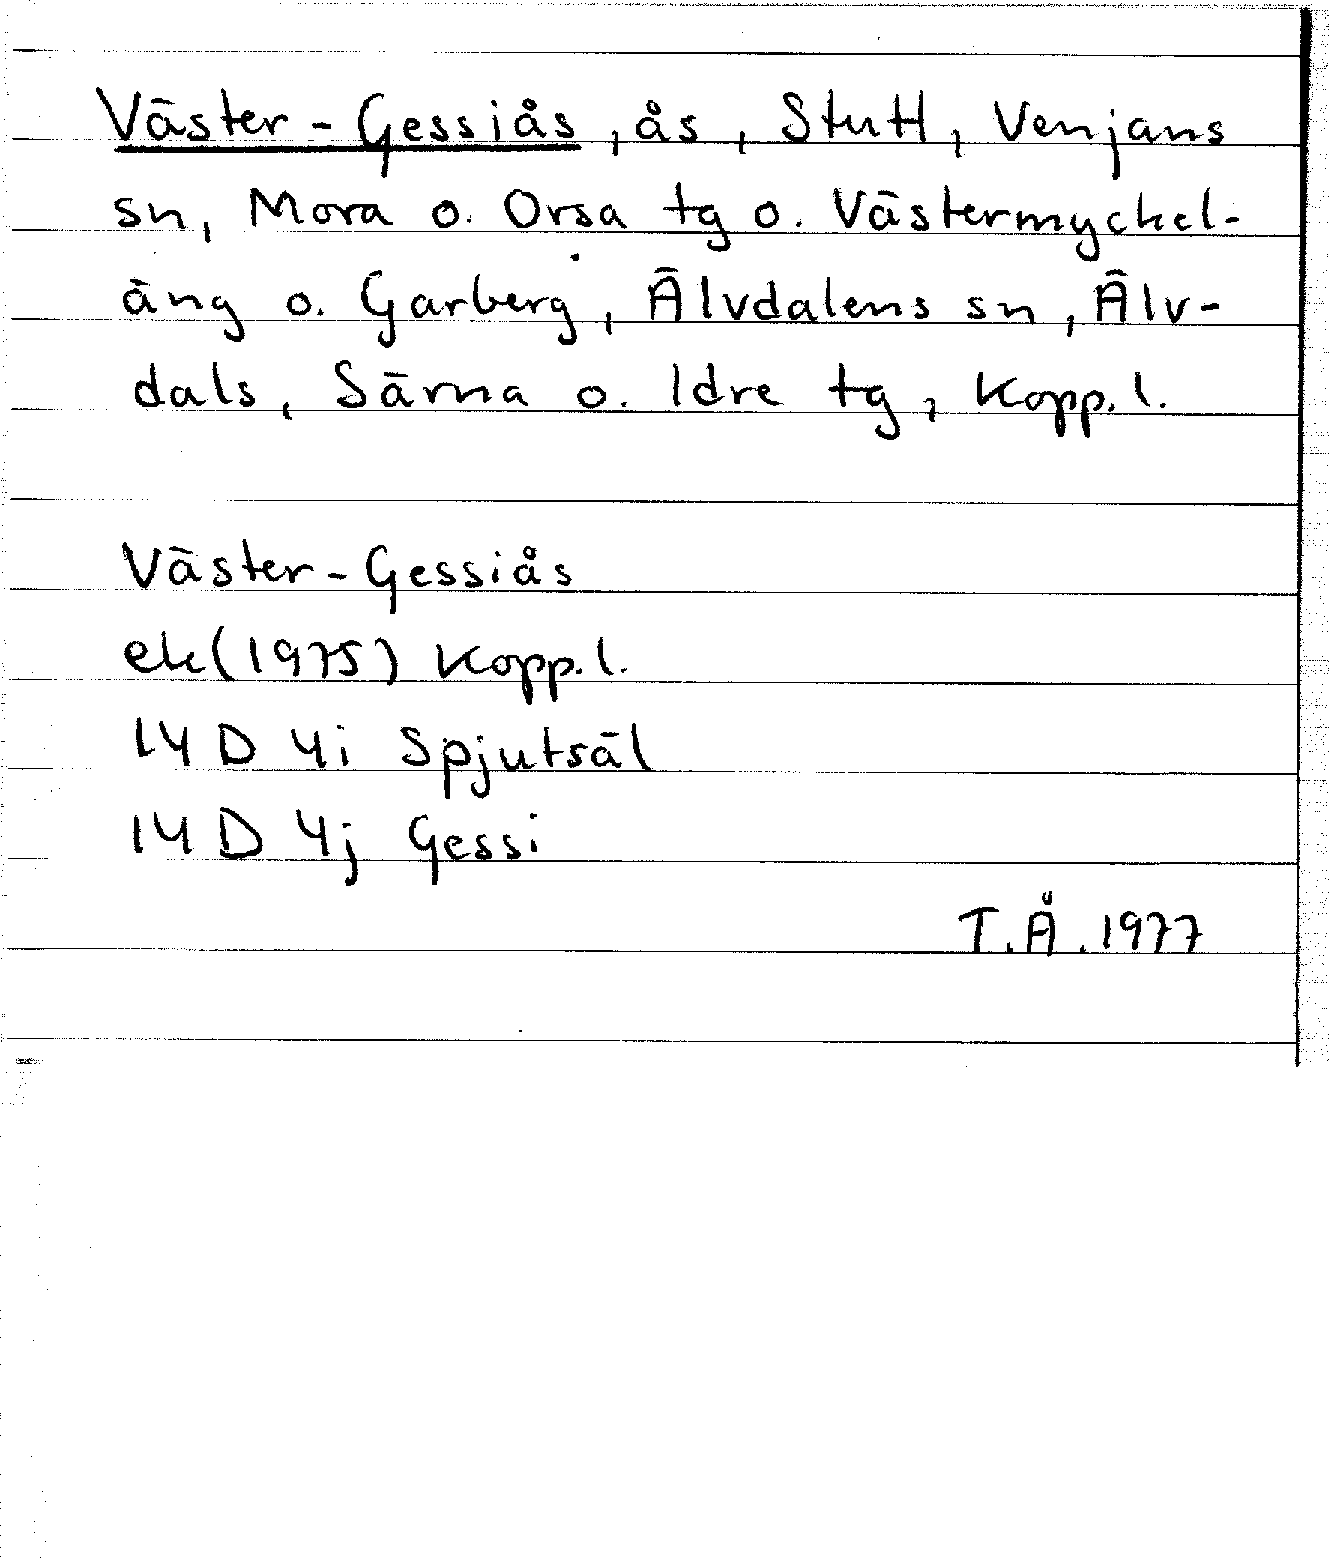 Väster-Gessiås, ås, Stutt, Venjans
sn, Mora o. Orsa tg o. Västermyckel-
äng o. Garberg, Älvdalens sn, Älv-
dals, Särna o. Idre tg, Kopp. l.
Väster-Gessiås
ek (1975) Kopp. l.
14 D 4i Spjutsäl
14 D 4j Gessi
T.Å. 1977